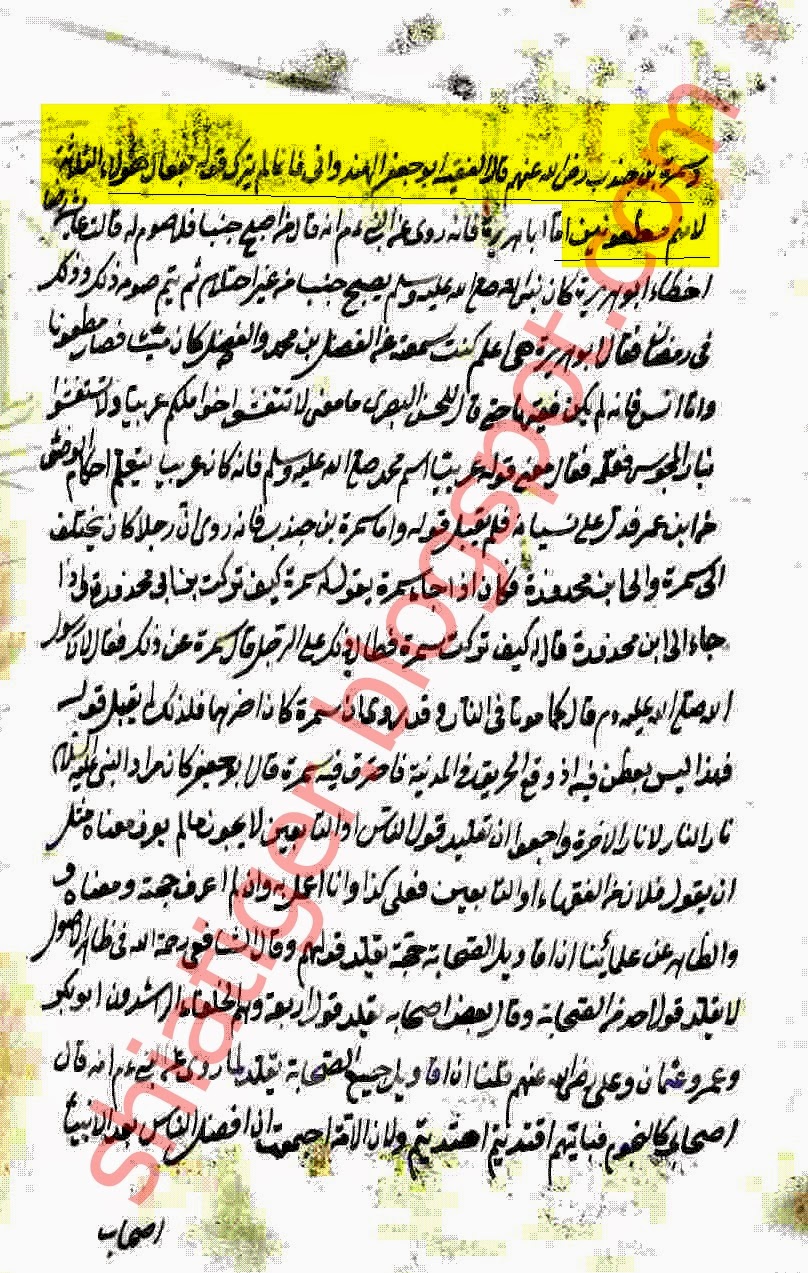 وسمرة بن جندب رضى الله عنهم قال الفقيه ابو جعفر الهندوانى فانما لم يترك قوله بفعال هؤلاء الثلاثة
لانهم مطعونين اما ابا هريرة فانه روى عن النبى عم انه قال من اصبح جنبا فلا صوم له قالت عايشة رضها
اخطاء ابو هريرة كان نبى الله صلى الله عليه وسلم يصبح جنبا من غير احتلام ثم يتم صومه ذلك وذلك
فى رمضان فقال ابو هريرة هى اعلم كنت سمعته عن الفضل بن محمد والفضل كان ميتا فصار مطعونا
واما انس فانه لم يكن فقيها حتى قال للحسن البصرى ما معنى لا تنقشوا خواتمكم عربيا ولا تستضئوا
بنار المجوس فقال معنى قوله عربيا اسم محمد صلى الله عليه وسلم فانه كان عربيا ليتعلم احكام
من ابن عمر فدل على نسيانه فلم يقبل قوله واما سمرة بن جندب فانه روى ان رجلا كان يختلف
الى سمرة والى ابن محذورة فكان اذا جاء سمرة يقول له سمرة كيف تركت بن ابى محذورة واذا
جاء الى ابن محذورة قال له كيف تركت سمرة فطال ذلك على الرجل قال سمرة عن ذلك فقال لان رسول
الله صلى الله عليه وم قال كما موتا فى النار وقد روى ان سمرة كان اخرهما فلذلك لم يقبل قوله
فهذا ليس بطعن فيه اذ وقع الحريق فى المدينة فاحترق فيه سمرة قال ابو جعفر كان مراد النبى عليه السلام
نار النار لا نار الاخرة واجمعوا ان تقليد قول الناس او التابعين لا يجوز ما لم يعرف معناه مثل
ان يقول فلان من الفقهاء او التابعين فعلى كذا وانا اعمل به وان لم اعرف حجته ومعناه و
والظاهر عن علمائنا ان اقاويل الصحابة حجة نقلد قولهم وقال الشافعى رحمة الله فى ظاهر الاصول
لا نقلد قول احد من الصحابة وقال بعض اصحابه نقلد قول اربعة وهم الخلفاء الراشدون ابو بكر
وعمر وعثمان وعلى رضى الله عنهم قلنا ان اقاويل جميع الصحابة نقلد لما روى عن النبى عم انه قال
اصحابى كالنجوم فبايهم اقتديتم اهتديتم ولان الامة اجمعت ان افضل الناس بعد الانبياء
اصحاب
shiatiger.blogspot.com